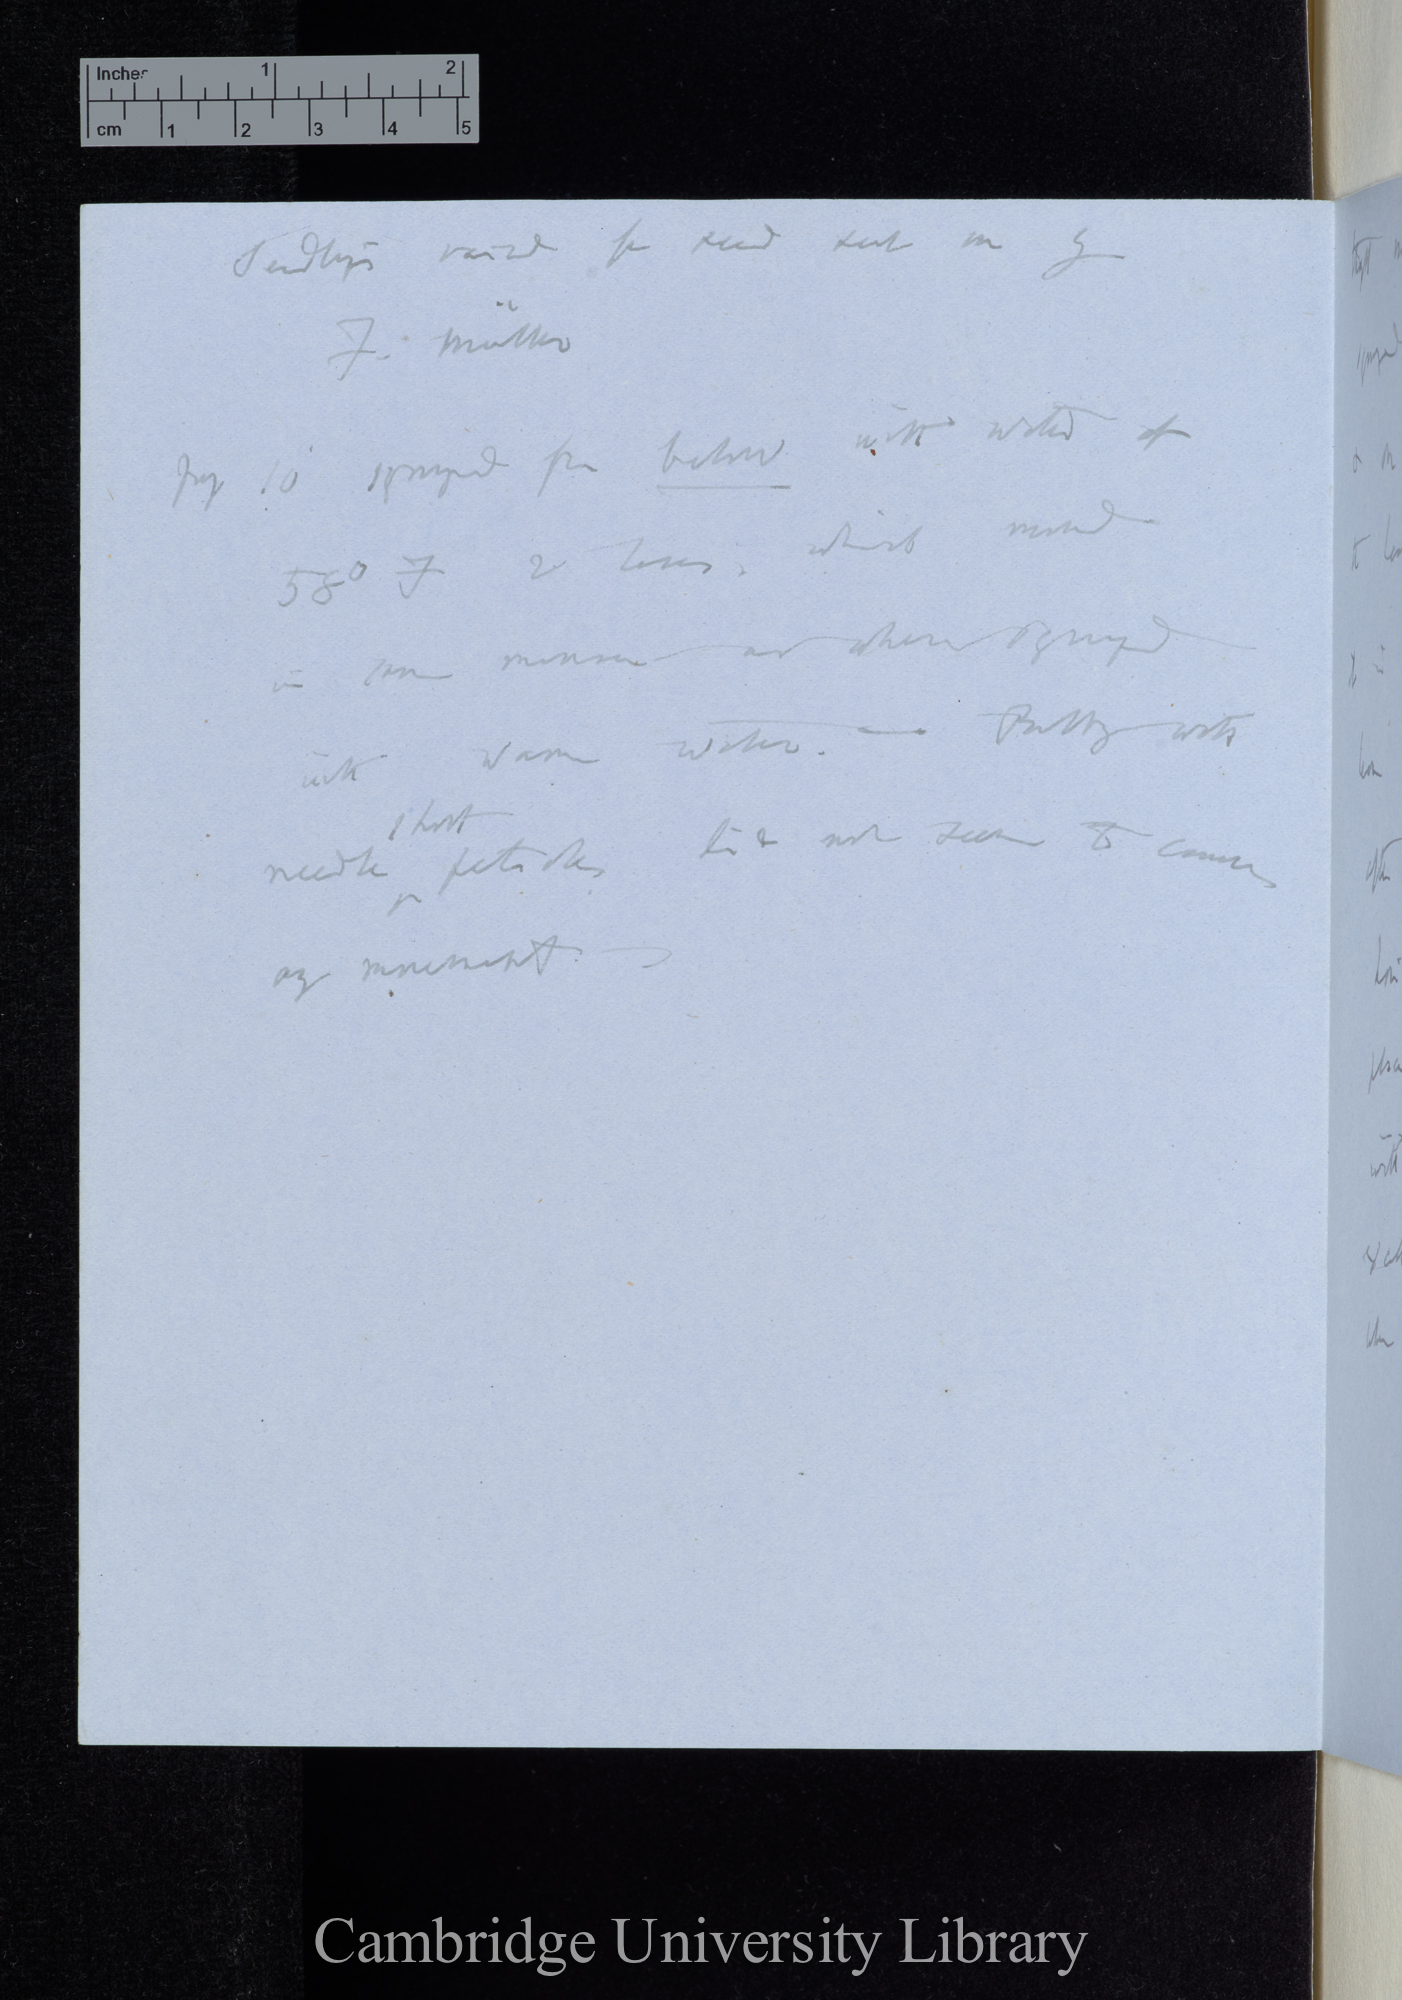 Inches 1 2
cm 1 2 3 4 5
Seedlings raised from seed sent me by
F. Müller
10 syringed from below with water at
58° F 2 leaves, which moved
in same manner as when syringed
with warm water. — Rubbing with
short
needle petioles did not seem to cause
any movement. —
Cambridge University Library